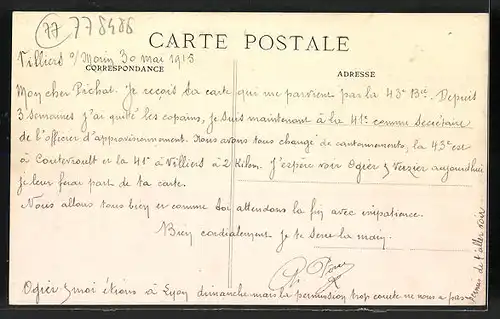 77 778488
CARTE POSTALE
Villiers s/ Morin 30 mai 1915
CORRESPONDANCE
ADRESSE
Mon cher Pichat. Je reçois ta carte qui me parvient par la 43e Bie. Depuis
3 semaines j'ai quitté les copains, je suis maintenant à la 41e comme secrétaire
de l'officier d'approvisionnement. Nous avons tous changé de cantonnements, la 43e est
à Coutevroult et la 41e à Villiers à 2 Kilom. J'espère voir Ogier & Verzier aujourd'hui
je leur ferai part de ta carte.
Nous allons tous bien et comme toi attendons la fin avec impatience.
Bien cordialement je te serre la main.
Ogier & moi étions à Lyon dimanche mais la permission trop courte ne nous a pas
permis de t'aller voir.